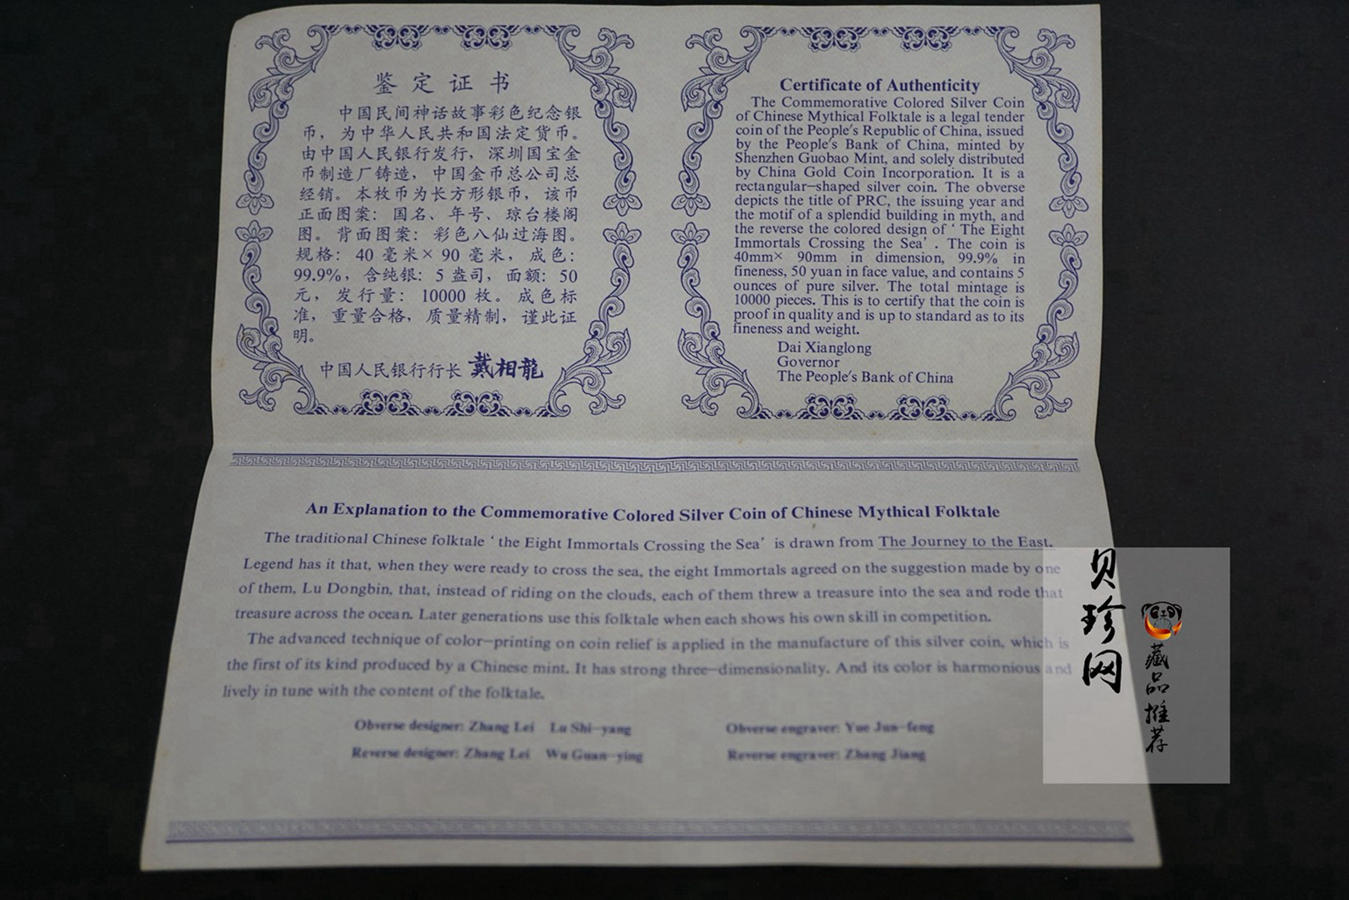 鉴定证书
中国民间神话故事彩色纪念银
币，为中华人民共和国法定货币。
由中国人民银行发行，深圳国宝金
币制造厂铸造，中国金币总公司总
经销。本枚币为长方形银币，该币
正面图案：国名、年号、琼台楼阁
图。背面图案：彩色八仙过海图。
规格：40 毫米× 90 毫米，成色：
99.9%，含纯银：5 盎司，面额：50
元，发行量：10000 枚。成色标
准，重量合格，质量精制，谨此证
明。
中国人民银行行长 戴相龍
Certificate of Authenticity
The Commemorative Colored Silver Coin
of Chinese Mythical Folktale is a legal tender
coin of the People's Republic of China, issued
by the People's Bank of China, minted by
Shenzhen Guobao Mint, and solely distributed
by China Gold Coin Incorporation. It is a
rectangular-shaped silver coin. The obverse
depicts the title of PRC, the issuing year and
the motif of a splendid building in myth, and
the reverse the colored design of ' The Eight
Immortals Crossing the Sea' . The coin is
40mm× 90mm in dimension, 99.9% in
fineness, 50 yuan in face value, and contains 5
ounces of pure silver. The total mintage is
10000 pieces. This is to certify that the coin is
proof in quality and is up to standard as to its
fineness and weight.
Dai Xianglong
Governor
The People's Bank of China
An Explanation to the Commemorative Colored Silver Coin of Chinese Mythical Folktale
The traditional Chinese folktale ' the Eight Immortals Crossing the Sea' is drawn from The Journey to the East.
Legend has it that, when they were ready to cross the sea, the eight Immortals agreed on the suggestion made by one
of them, Lu Dongbin, that, instead of riding on the clouds, each of them threw a treasure into the sea and rode that
treasure across the ocean. Later generations use this folktale when each shows his own skill in competition.
The advanced technique of color-printing on coin relief is applied in the manufacture of this silver coin, which is
the first of its kind produced by a Chinese mint. It has strong three-dimensionality. And its color is harmonious and
lively in tune with the content of the folktale.
Obverse designer: Zhang Lei Lu Shi-yang
Obverse engraver: Yue Jun-feng
Reverse designer: Zhang Lei Wu Guan-ying
Reverse engraver: Zhang Jiang
贝珍网
藏品推荐